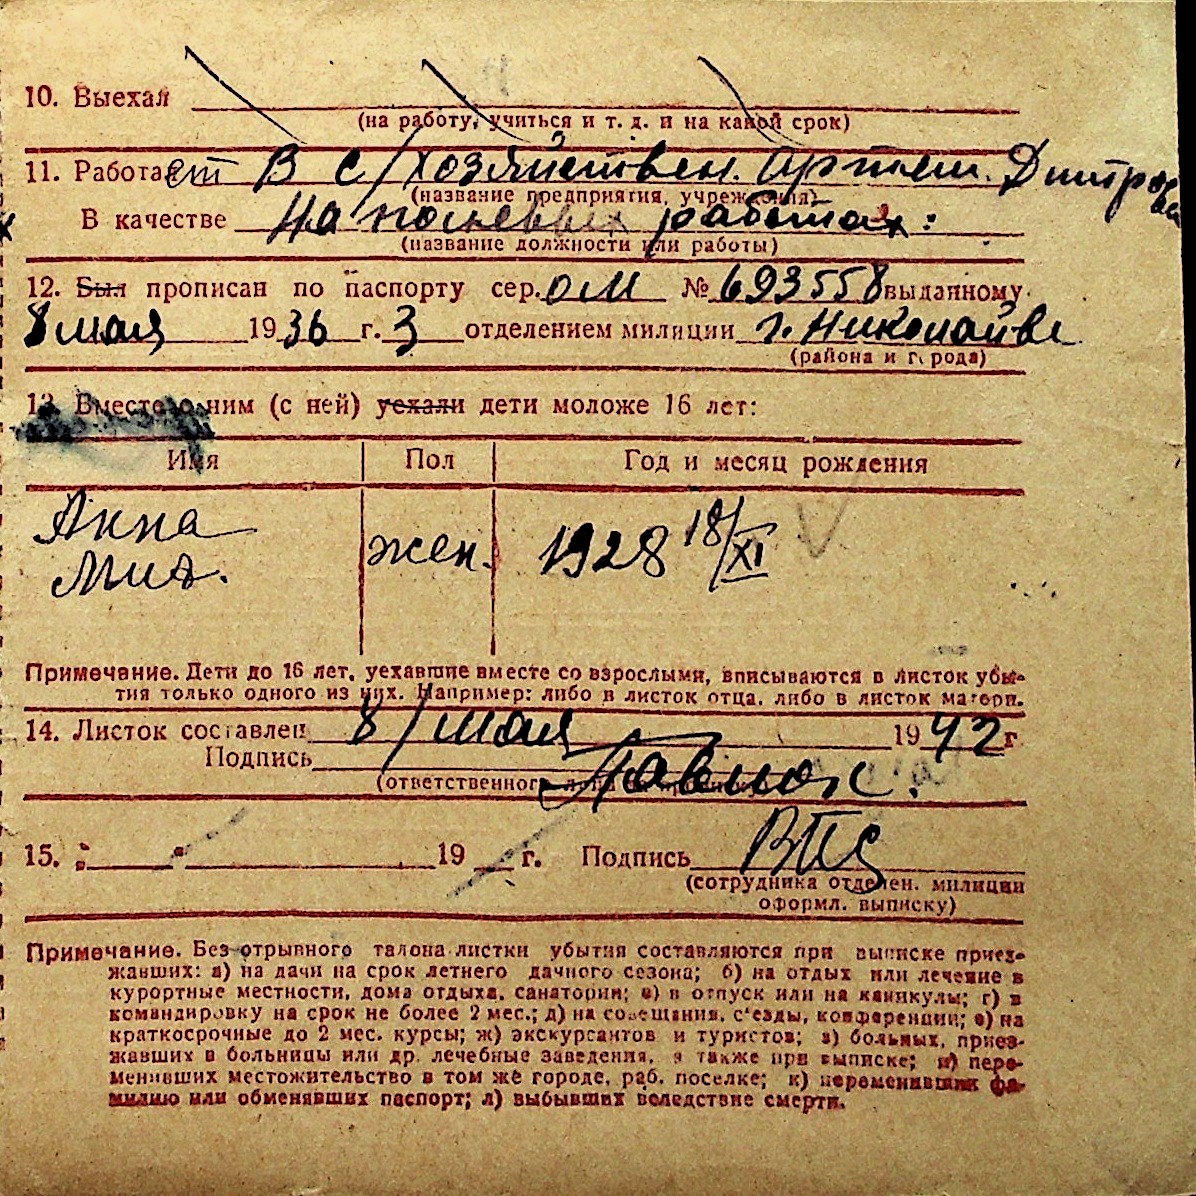 10. Выехал
(на работу, учиться и т. д. и на какой срок)
11. Работает В с/хозяйствен. артели. Дмитрова
(название предприятия, учреждения)
В качестве На полевых работах:
(название должности или работы)
12. Был прописан по паспорту сер. ОМ № 693558 выданному
8 мая 1936 г. 3 отделением милиции г. Николайве
(района и города)
13. Вместе с ним (с ней) уехали дети моложе 16 лет:
Имя Пол Год и месяц рождения
Анна
жен. 1928 18/XI
Примечание. Дети до 16 лет, уехавшие вместе со взрослыми, вписываются в листок убы-
тия только одного из них. Например: либо в листок отца, либо в листок матери.
14. Листок составлен 8/мая 1942 г.
Подпись
(ответственного
15. " " 19 г. Подпись
(сотрудника отделен. милиции
оформл. выписку)
Примечание. Без отрывного талона листки убытия составляются при выписке приез-
жавших: а) на дачи на срок летнего дачного сезона; б) на отдых или лечение в
курортные местности, дома отдыха, санатории; в) в отпуск или на каникулы; г) в
командировку на срок не более 2 мес.; д) на совещания, с'езды, конференции; е) на
краткосрочные до 2 мес. курсы; ж) экскурсантов и туристов; з) больных, приез-
жавших в больницы или др. лечебные заведения, а также при выписке; и) пере-
менивших местожительство в том же городе, раб. поселке; к) переменивших фа-
милию или обменявших паспорт; л) выбывших вследствие смерти.